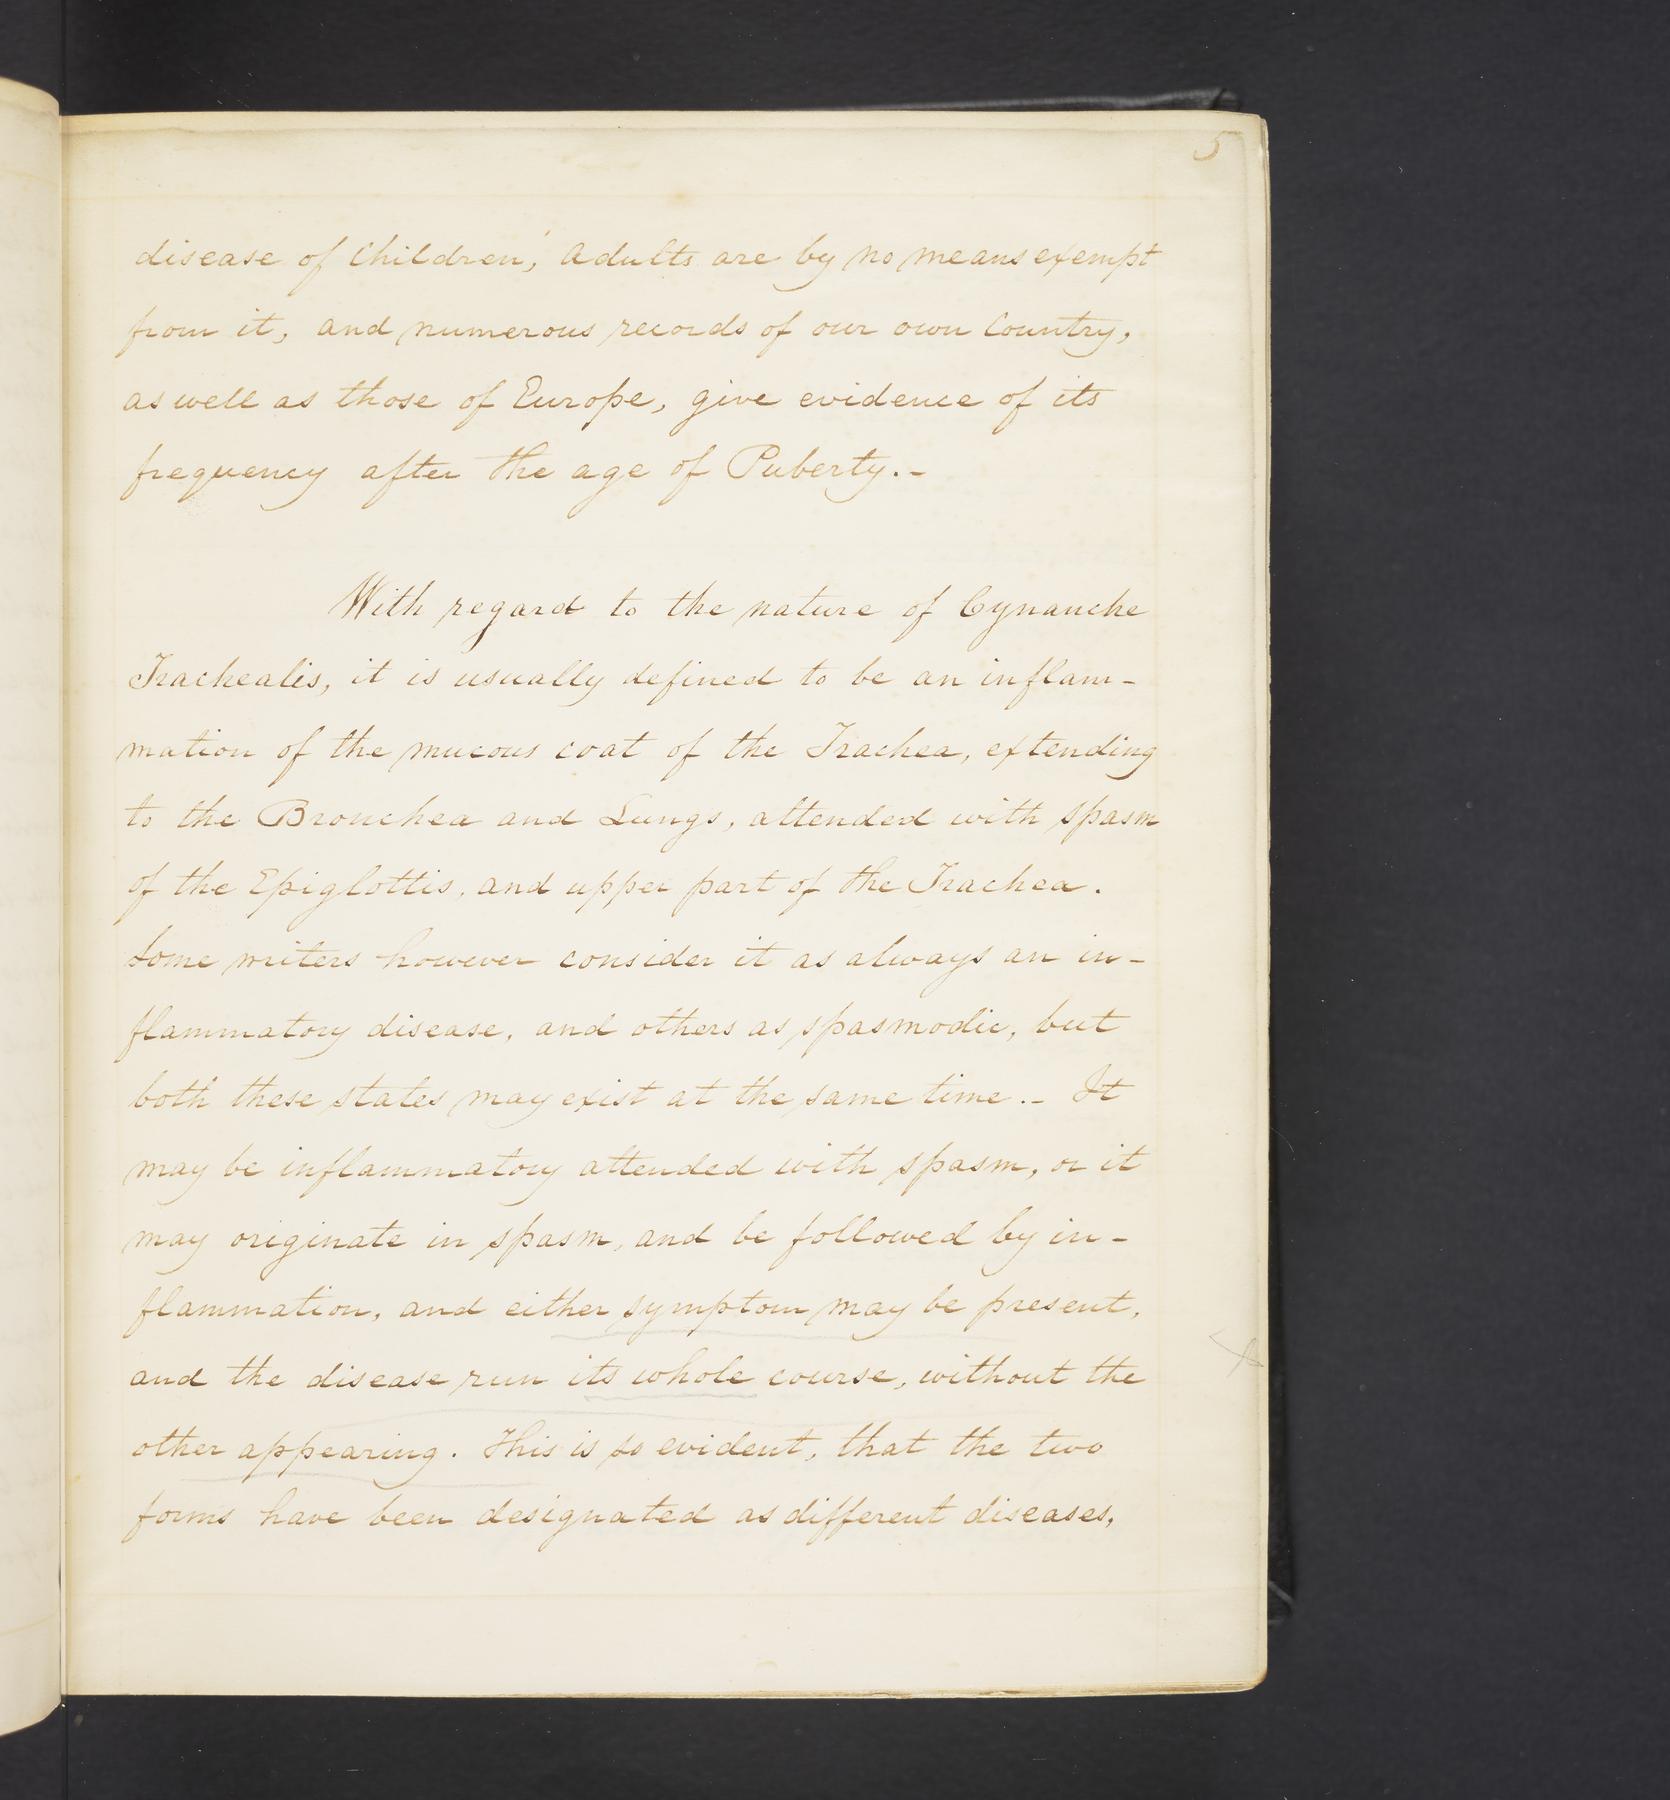 5
disease of Children, Adults are by no means exempt
from it, and numerous records of our own Country,
as well as those of Europe, give evidence of its
frequency after the age of Puberty.-
With regard to the nature of Cynanche
Trachealis, it is usually defined to be an inflam-
mation of the mucous coat of the Trachea, extending
to the Bronchea and Lungs, attended with spasm
of the Epiglottis, and upper part of the Trachea.
Some writers however consider it as always an in-
flammatory disease, and others as spasmodic, but
both these states may exist at the same time.- It
may be inflammatory attended with spasm, or it
may originate in spasm, and be followed by in-
flammation, and either symptom may be present,
and the disease run its whole course, without the
other appearing. This is so evident, that the two
forms have been designated as different diseases,